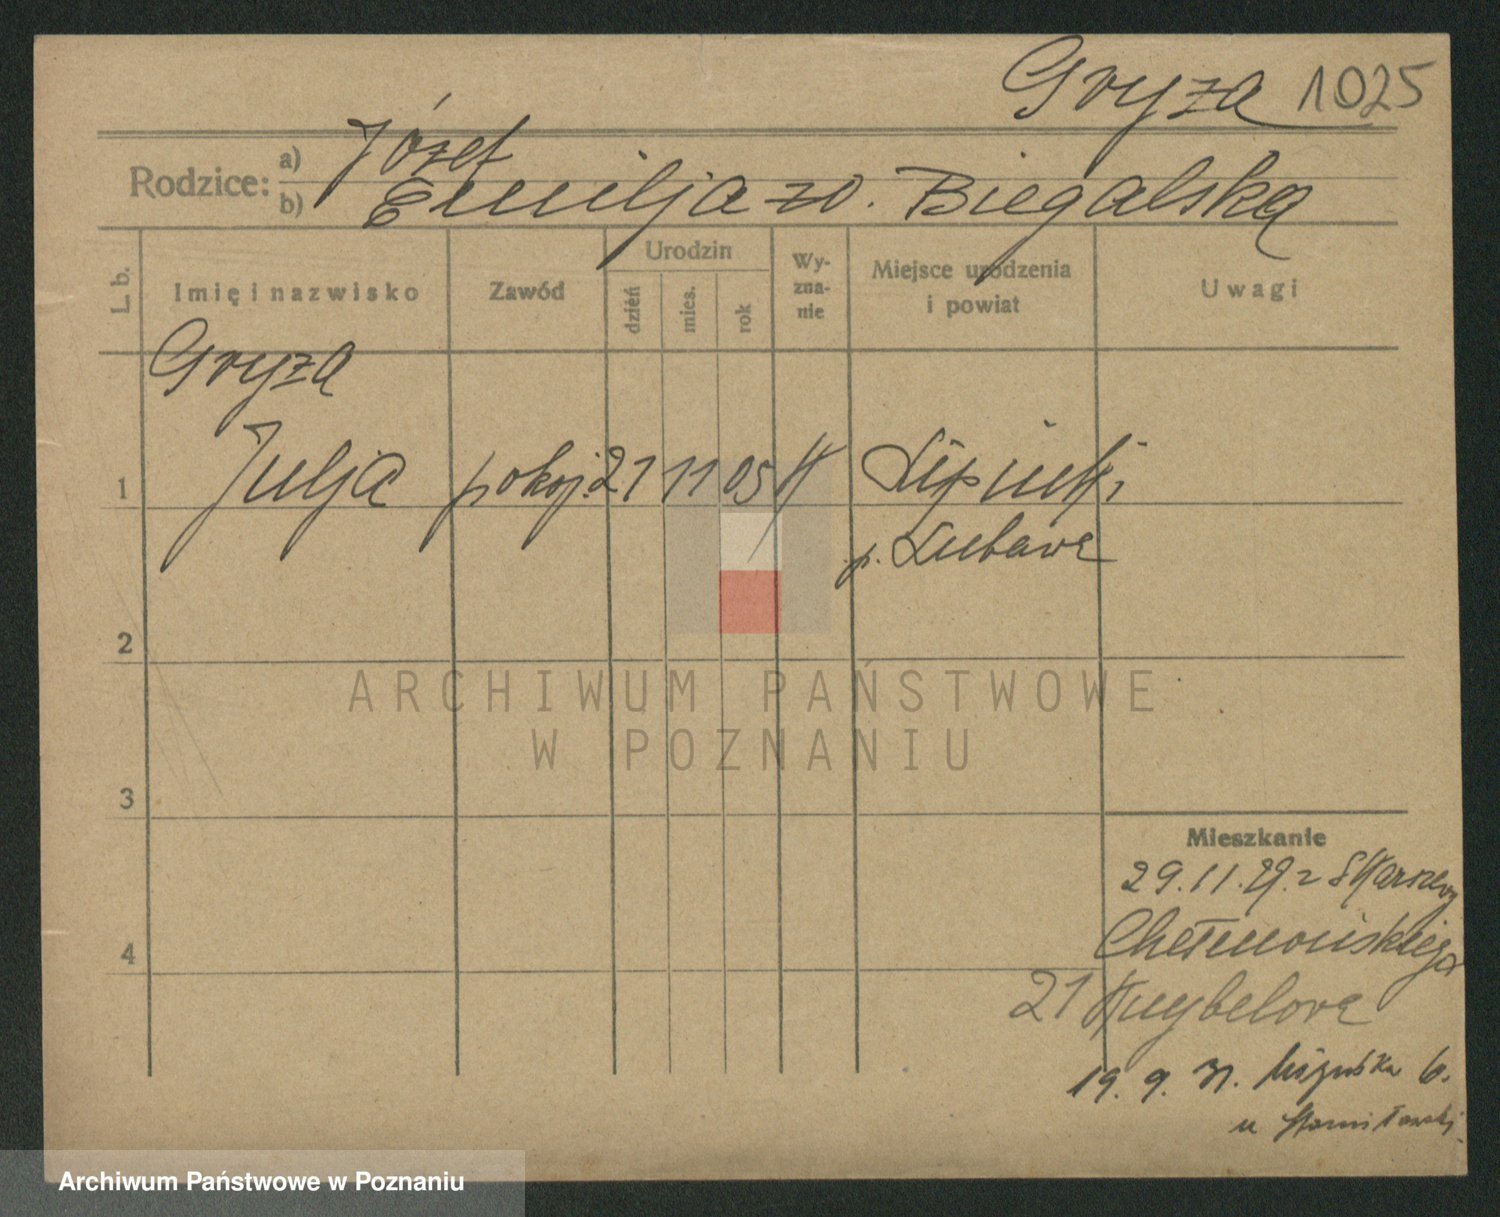 Gryza 1025
Rodzice: a) Józef
b) Emilja zd. Biegalska
L. b. Imię i nazwisko Zawód Urodzin dzień mies. rok Wyznanie Miejsce urodzenia i powiat Uwagi
Gryza
1 Julja pokoj. 21 11 05 K
p. Lubawa
2
ARCHIWUM PAŃSTWOWE
W POZNANIU
3
Mieszkanie
29.11.29. z
4 Chełmońskiego
21
19. 9. 31. 6.
u
Archiwum Państwowe w Poznaniu